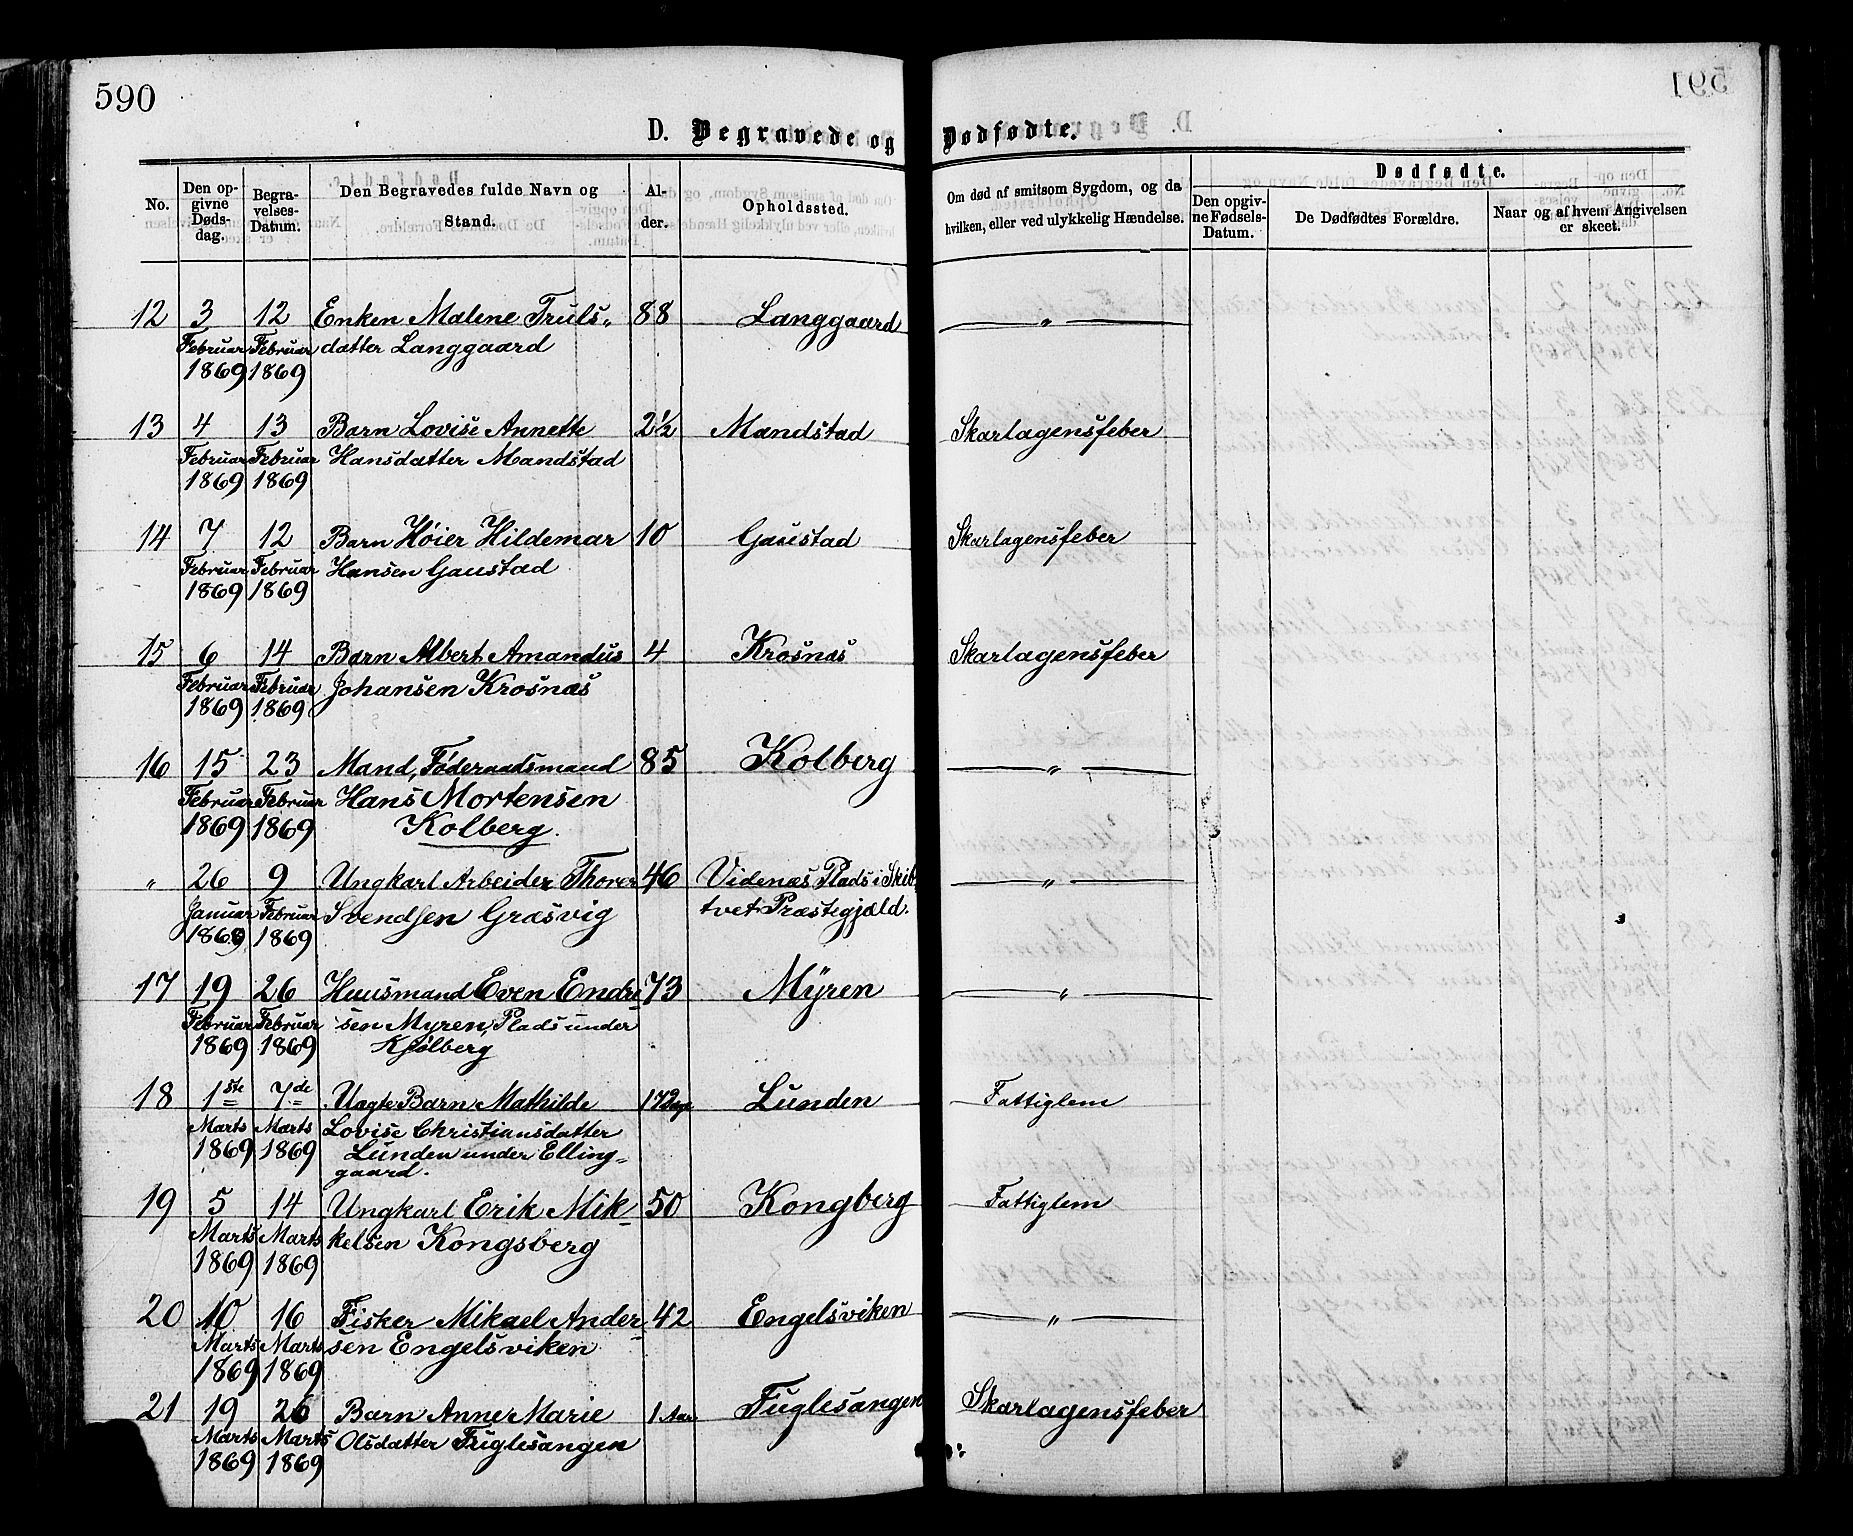 590
D. Begravede og Dødfødte.
No.
Den opgivne Dødsdag.
Begravelses-Datum.
Den Begravedes fulde Navn og Stand.
Alder.
Opholdssted.
Om død af smitsom Sygdom, og da hvilken, eller ved ulykkelig Hændelse.
Dødfødte.
Den opgivne Fødsels-Datum.
De Dødfødtes Forældre.
Naar og af hvem Angivelsen er skeet.
12 3 12 Enken Malene Truls„ 88 Langgaard — „ —
Februar Februar datter Langgaard
1869 1869
13 4 13 Barn Lovise Annette 2½ Mandstad Skarlagensfeber
Februar Februar Hansdatter Mandstad
1869 1869
14 7 12 Barn Høier Hildemar 10 Gaustad Skarlagensfeber
Februar Februar Hansen Gaustad
1869 1869
15 6 14 Barn Albert Amandus 4 Krosnæs Skarlagensfeber
Februar Februar Johansen Krosnæs
1869 1869
16 15 23 Mand, Føderaadsmand 85 Kolberg — „ —
Februar Februar Hans Mortensen
1869 1869 Kolberg.
„ 26 9 Ungkarl Arbeider Thorer 46 Videnæs Plads i Skib- — „ —
Januar Februar Svendsen Græsvig tvet Præstegjæld.
1869 1869
17 19 26 Huusmand Even Endre 73 Myren — „ —
Februar Februar sen Myren, Plads under
1869 1869 Kjølberg
18 1ste 7de Uægte Barn Mathilde Lunden Fattiglem
Marts Marts Lovise Christiansdatter
1869 1869 Lunden under Elling„
gaard.
19 5 14 Ungkarl Erik Mik- 50 Kongberg Fattiglem
Marts Marts kelsen Kongsberg
1869 1869
20 10 16 Fisker Mikael Ander- 42 Engelsviken — „ —
Marts Marts sen Engelsviken
1869 1869
21 19 26 Barn Anne Marie 1 Aar Fuglesangen Skarlagensfeber
Marts Marts Olsdatter Fuglesangen
1869 1869